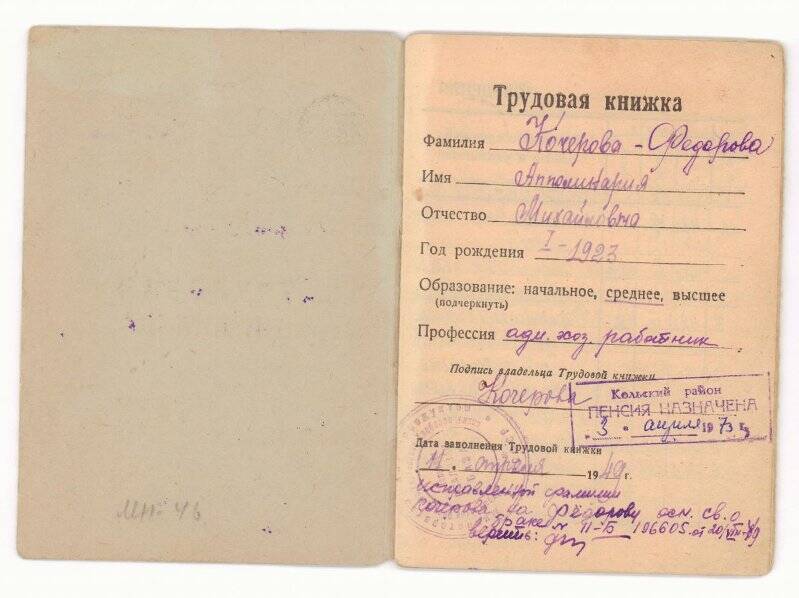 Трудовая книжка
Фамилия Кочерова - Федорова
Имя Апполинария
Отчество Михайловна
Год рождения I - 1923
Образование: начальное, среднее, высшее
(подчеркнуть)
Профессия адм. хоз. работник
Подпись владельца Трудовой книжки
Кочерова
Кольский район
ПЕНСИЯ НАЗНАЧЕНА
"3" апреля 1973 г.
Дата заполнения Трудовой книжки
11 1949 г.
фамилии
Кочерова на Федорову осн. св. о
браке № II-ГБ 106605 от
МН- 46